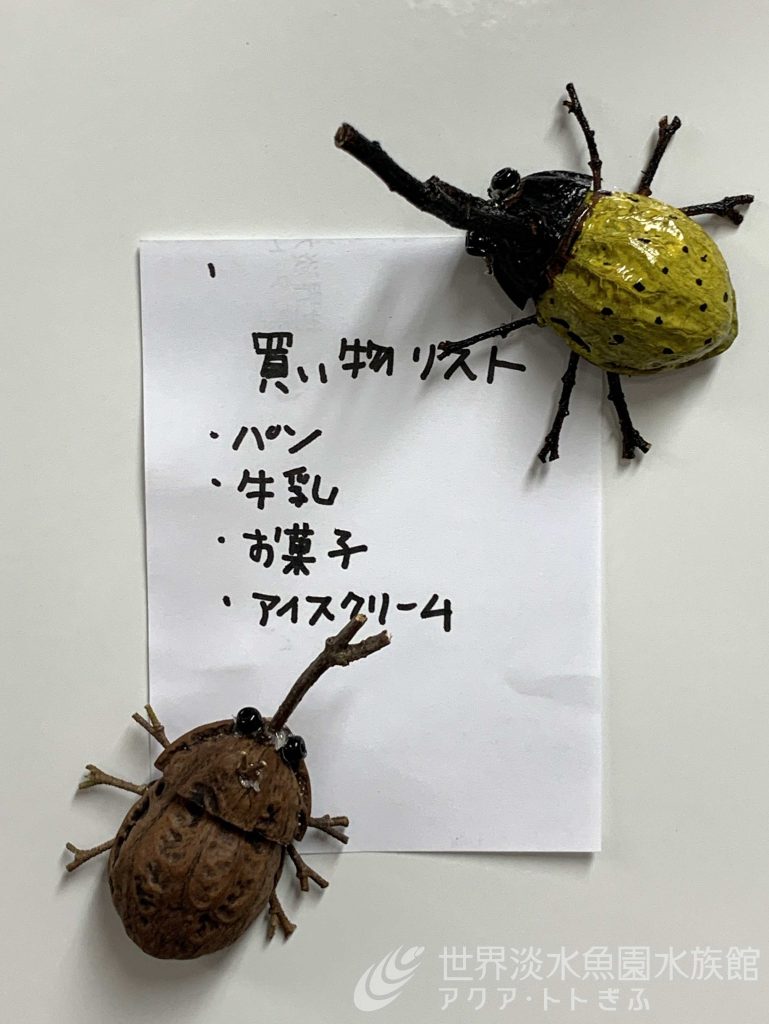 買い物リスト
・パン
・牛乳
・お菓子
・アイスクリーム
世界淡水魚園水族館
アクア・トトぎふ